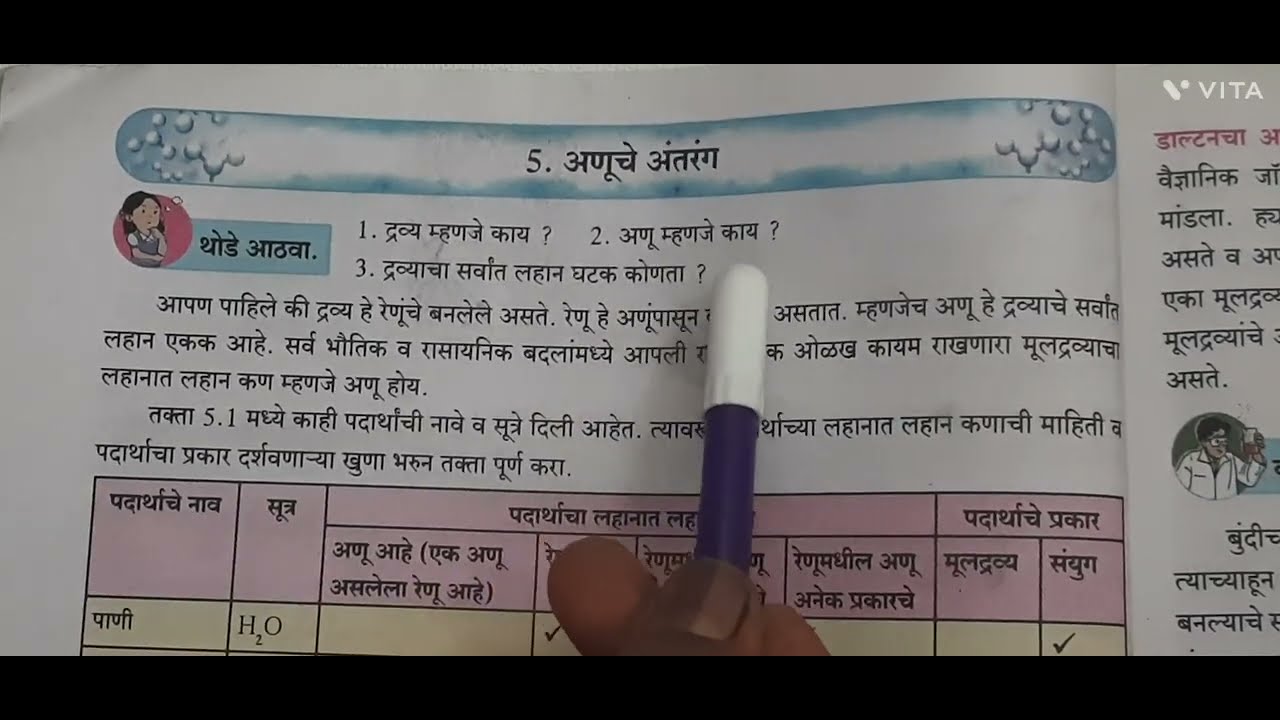 VITA
5. अणूचे अंतरंग
थोडे आठवा.
1. द्रव्य म्हणजे काय ? 2. अणू म्हणजे काय ?
3. द्रव्याचा सर्वांत लहान घटक कोणता ?
आपण पाहिले की द्रव्य हे रेणूंचे बनलेले असते. रेणू हे अणूंपासून असतात. म्हणजेच अणू हे द्रव्याचे सर्वांत
लहान एकक आहे. सर्व भौतिक व रासायनिक बदलांमध्ये आपली ओळख कायम राखणारा मूलद्रव्याचा
लहानात लहान कण म्हणजे अणू होय.
तक्ता 5.1 मध्ये काही पदार्थांची नावे व सूत्रे दिली आहेत. लहानात लहान कणाची माहिती व
पदार्थाचा प्रकार दर्शवणाऱ्या खुणा भरुन तक्ता पूर्ण करा.
पदार्थाचे नाव सूत्र पदार्थाचा लहानात पदार्थाचे प्रकार
अणू आहे (एक अणू रेणूमधील अणू मूलद्रव्य संयुग
असलेला रेणू आहे) अनेक प्रकारचे
पाणी H₂O ✓ ✓
डाल्टनचा
वैज्ञानिक
मांडला.
असते व
एका
मूलद्रव्यांचे
असते.
त्याच्याहून
बनल्याचे